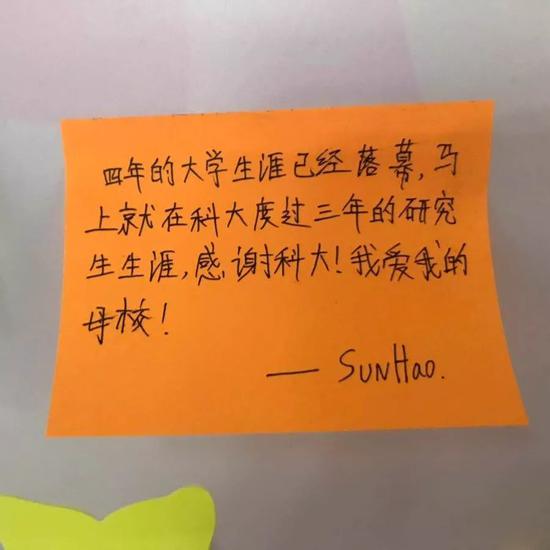 四年的大学生涯已经落幕,马
上就在科大度过三年的研究
生生涯,感谢科大!我爱我的
母校!
—— SUNHao.